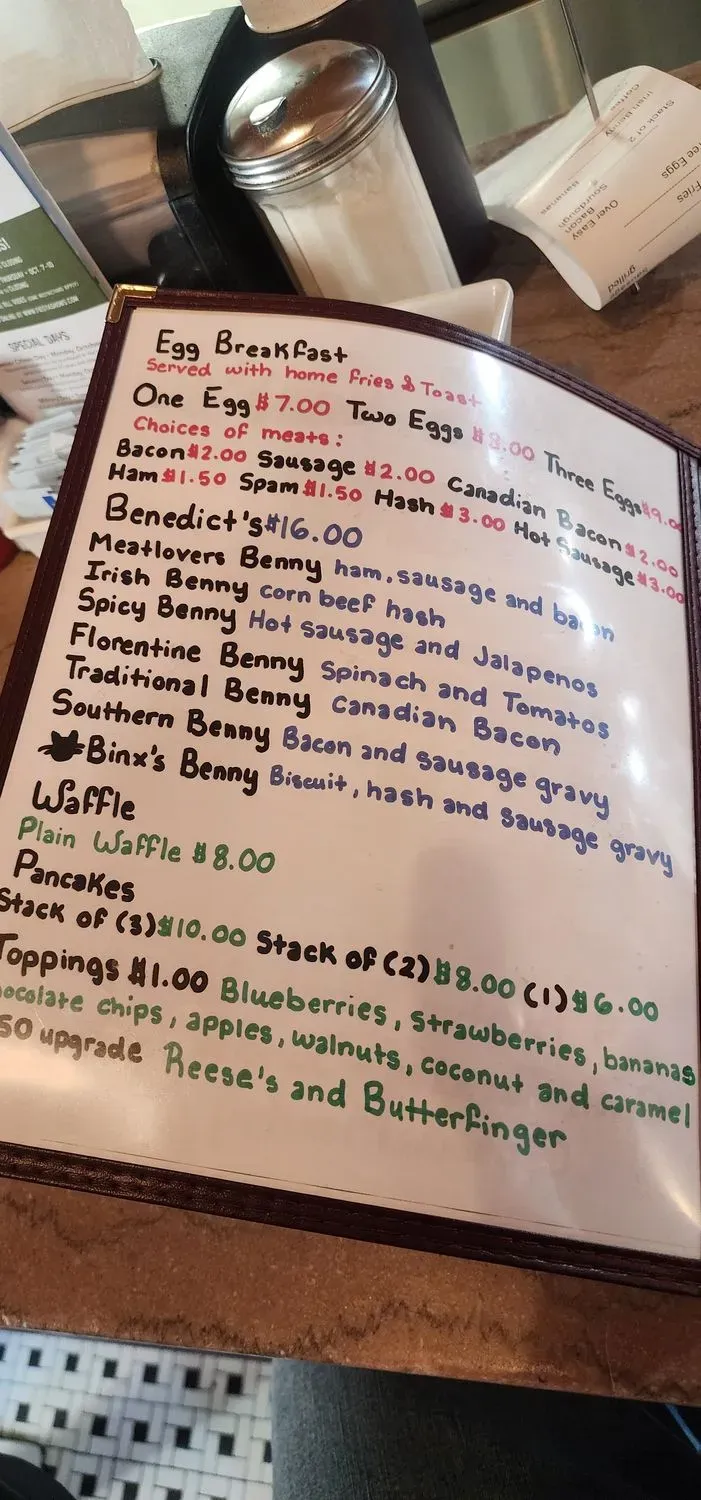 Egg Breakfast
Served with home fries & Toast
One Egg $7.00 Two Eggs $8.00 Three Eggs $9.00
Choices of meats:
Bacon $2.00 Sausage $2.00 Canadian Bacon $2.00
Ham $1.50 Spam $1.50 Hash $3.00 Hot Sausage $3.00
Benedict's $16.00
Meatlovers Benny ham, sausage and bacon
Irish Benny corn beef hash
Spicy Benny Hot sausage and Jalapenos
Florentine Benny Spinach and Tomatos
Traditional Benny Canadian Bacon
Southern Benny Bacon and sausage gravy
Binx's Benny Biscuit, hash and sausage gravy
Waffle
Plain Waffle $8.00
Pancakes
Stack of (3) $10.00 Stack of (2) $8.00 (1) $6.00
Toppings $1.00 Blueberries, strawberries, bananas
ocolate chips, apples, walnuts, coconut and caramel
50 upgrade Reese's and Butterfinger
SPECIAL DAYS
Irish Benny
Coffee
Stack of 2
Bananas
ree Eggs
Over Easy
Bacon
Sourdough
Fries
grilled